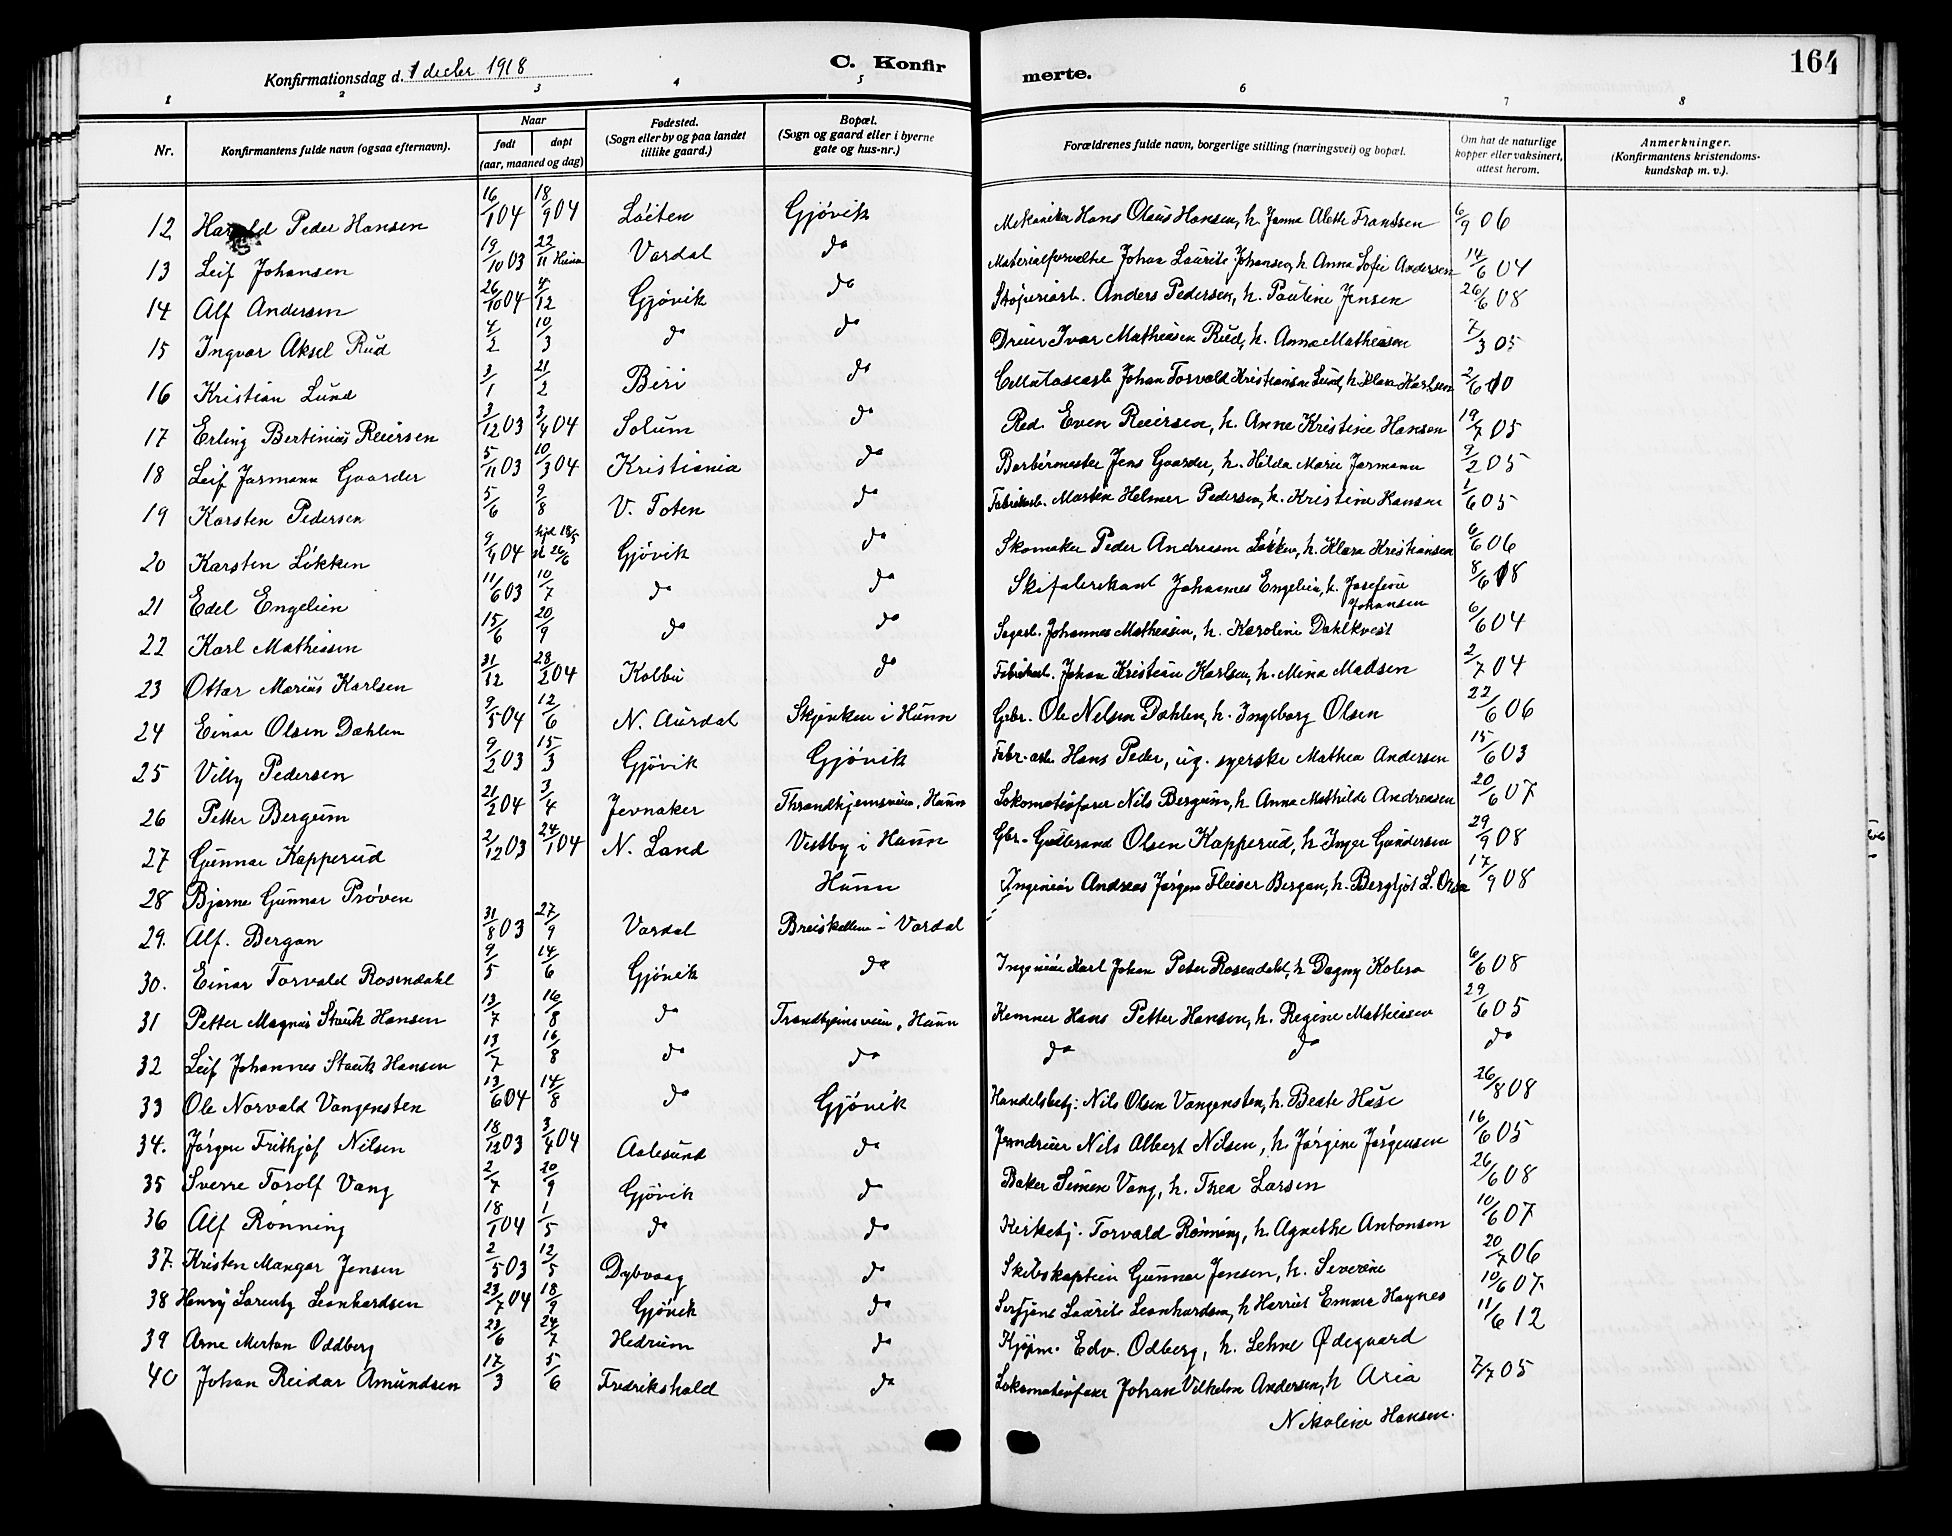 Konfirmationsdag d. 1 decbr 1918
C. Konfir
merte.
164
1 2 3 4 5 6 7 8
Nr. Konfirmantens fulde navn (ogsaa efternavn). Naar født døpt (aar, maaned og dag) Fødested. (Sogn eller by og paa landet tillike gaard.) Bopæl. (Sogn og gaard eller i byerne gate og hus-nr.) Forældrenes fulde navn, borgerlige stilling (næringsvei) og bopæl. Om hat de naturlige kopper eller vaksinert, attest herom. Anmerkninger. (Konfirmantens kristendoms-kundskap m. v.).
12 Harald Peder Hansen 16/1 04 18/9 04 Løiten Gjövik Mekaniker Hans Olaus Hansen, h. Janna Aleth Frandsen 6/9 06
13 Leif Johansen 19/10 03 22/11 Hunn Vardal do Materialforvalter Johan Laurits Johansen, h. Anna Sofie Andersen 14/6 04
14 Alf Andersen 26/10 04 4/12 Gjövik do Støperiarb. Anders Pedersen, h. Pauline Jensen 26/6 08
15 Ingvar Aksel Rud 4/2 10/3 do do Dreier Ivar Mathiasen Rud, h. Anna Mathiasen 7/3 05
16 Kristian Lund 3/1 21/2 Biri do Cellulosearb Johan Torvald Kristiansen Lund, h. Klara Karlsen 2/6 10
17 Erling Bertinius Reiersen 3/12 03 3/4 04 Solum do Red. Even Reiersen, h. Anne Kristine Hansen 19/7 05
18 Leif Jarmann Gaarder 5/11 03 10/3 04 Kristiania do Barbérmester Jens Gaarder, h. Hilda Marie Jarmann 9/2 05
19 Karsten Pedersen 5/6 9/8 V. Toten do Fabrikarb. Martin Helmer Pedersen, h. Kristine Hansen 1/6 05
20 Karsten Løkken 9/4 04 hjd 18/5 st 26/6 Gjövik do Skomaker Peder Andreasen Løkken, h. Klara Kristiansen 6/6 06
21 Edel Engelien 11/6 03 10/7 do do Skifabrikant Johannes Engelien, h. Josefine Johansen 8/6 18
22 Karl Mathiasen 15/6 20/9 do do Sagarb. Johannes Mathiasen, h. Karoline Dahlkvist 6/6 04
23 Ottar Marius Karlsen 31/12 28/2 04 Kolbu do Fabrikarb. Johan Kristian Karlsen, h. Mina Madsen 2/7 04
24 Einar Olsen Dahlen 9/5 04 12/6 N. Aurdal Skjenken i Hunn Gbr. Ole Nelsen Dahlen, h. Ingeborg Olsen 22/6 06
25 Villy Pedersen 9/2 03 15/3 Gjövik Gjövik Fabr. arb. Hans Peder, ug. syerske Mathea Andersen 15/6 03
26 Petter Bergum 21/2 04 3/4 Jevnaker Throndhjemsveien, Hunn Lokomotivfører Nils Bergum, h. Anna Mathilde Andreasen 20/6 07
27 Gunnar Kapperud 2/12 03 24/1 04 N. Land Vestby i Hunn Gbr. Gudbrand Olsen Kapperud, h. Inger Gundersen 29/9 08
28 Bjarne Gunnar Prøven Hunn Ingeniør Andreas Jørgen Fleiser Bergan, h. Bergljot L. 17/9 08
29. Alf. Bergan 31/8 03 27/9 Vardal Breiskallen i Vardal
30. Einar Torvald Rosendahl 9/5 14/6 Gjövik do Ingeniör Karl Johan Peter Rosendahl, h Dagny 6/6 08
31 Petter Magnus Stauk Hansen 13/7 16/8 do Trondhjemsveien, Hunn Kemner Hans Petter Hansen, h. Regine Mathiasen 29/6 05
32 Leif Johannes Stauk Hansen 13/7 16/8 do do do do do
33 Ole Norvald Vangensten 13/6 04 14/8 do Gjövik Handelsbetj: Nils Olsen Vangensten, h. Beate Huse 26/8 08
34. Jørgen Frithjof Nilsen 18/12 03 3/4 04 Aalesund do Jerndreier Nils Albert Nilsen, h Jørgine Jørgensen 16/6 05
35 Sverre Torolf Vang 2/7 20/9 Gjövik do Baker Simen Vang, h. Thea Larsen 26/6 08
36 Alf Rønning 18/1 04 1/5 do do Kirketj. Torvald Rønning, h. Agnethe Antonsen 10/6 07
37. Kristen Mangor Jensen 2/5 03 12/5 Dybvaag do Skibskaptein Gunnar Jensen, h. Severine 20/7 06
38 Henry Lorentz Leonhardsen 23/7 04 18/9 Gjövik do Laurits Leonhardsen, h Harriet Emma Haynes 10/6 07
39 Arne Merton Oddberg 22/6 24/7 Hedrum do Kjøpm. Edv. Odberg, h. Lehne Ødegaard 11/6 12
40 Johan Reidar Amundsen 17/3 5/6 Fredrikshald do Lokomotivfører Johan Vilhelm Andersen, h Aria 7/7 05
Nikoline Hansen.